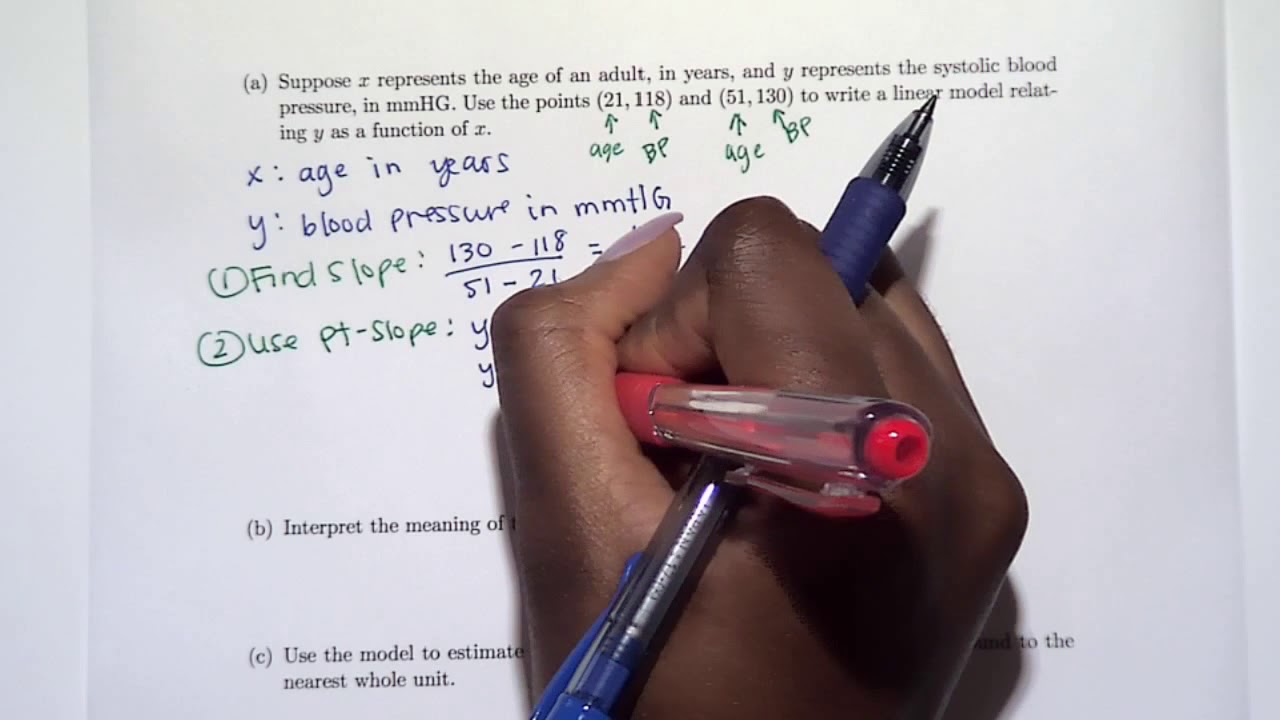 (a) Suppose x represents the age of an adult, in years, and y represents the systolic blood
pressure, in mmHG. Use the points (21, 118) and (51, 130) to write a linear model relat-
ing y as a function of x.
age BP age BP
x: age in years
y: blood pressure in mmHG
① Find slope: 130 - 118 =
51 - 21
② use pt-slope: y
y
(b) Interpret the meaning of
(c) Use the model to estimate to the
nearest whole unit.